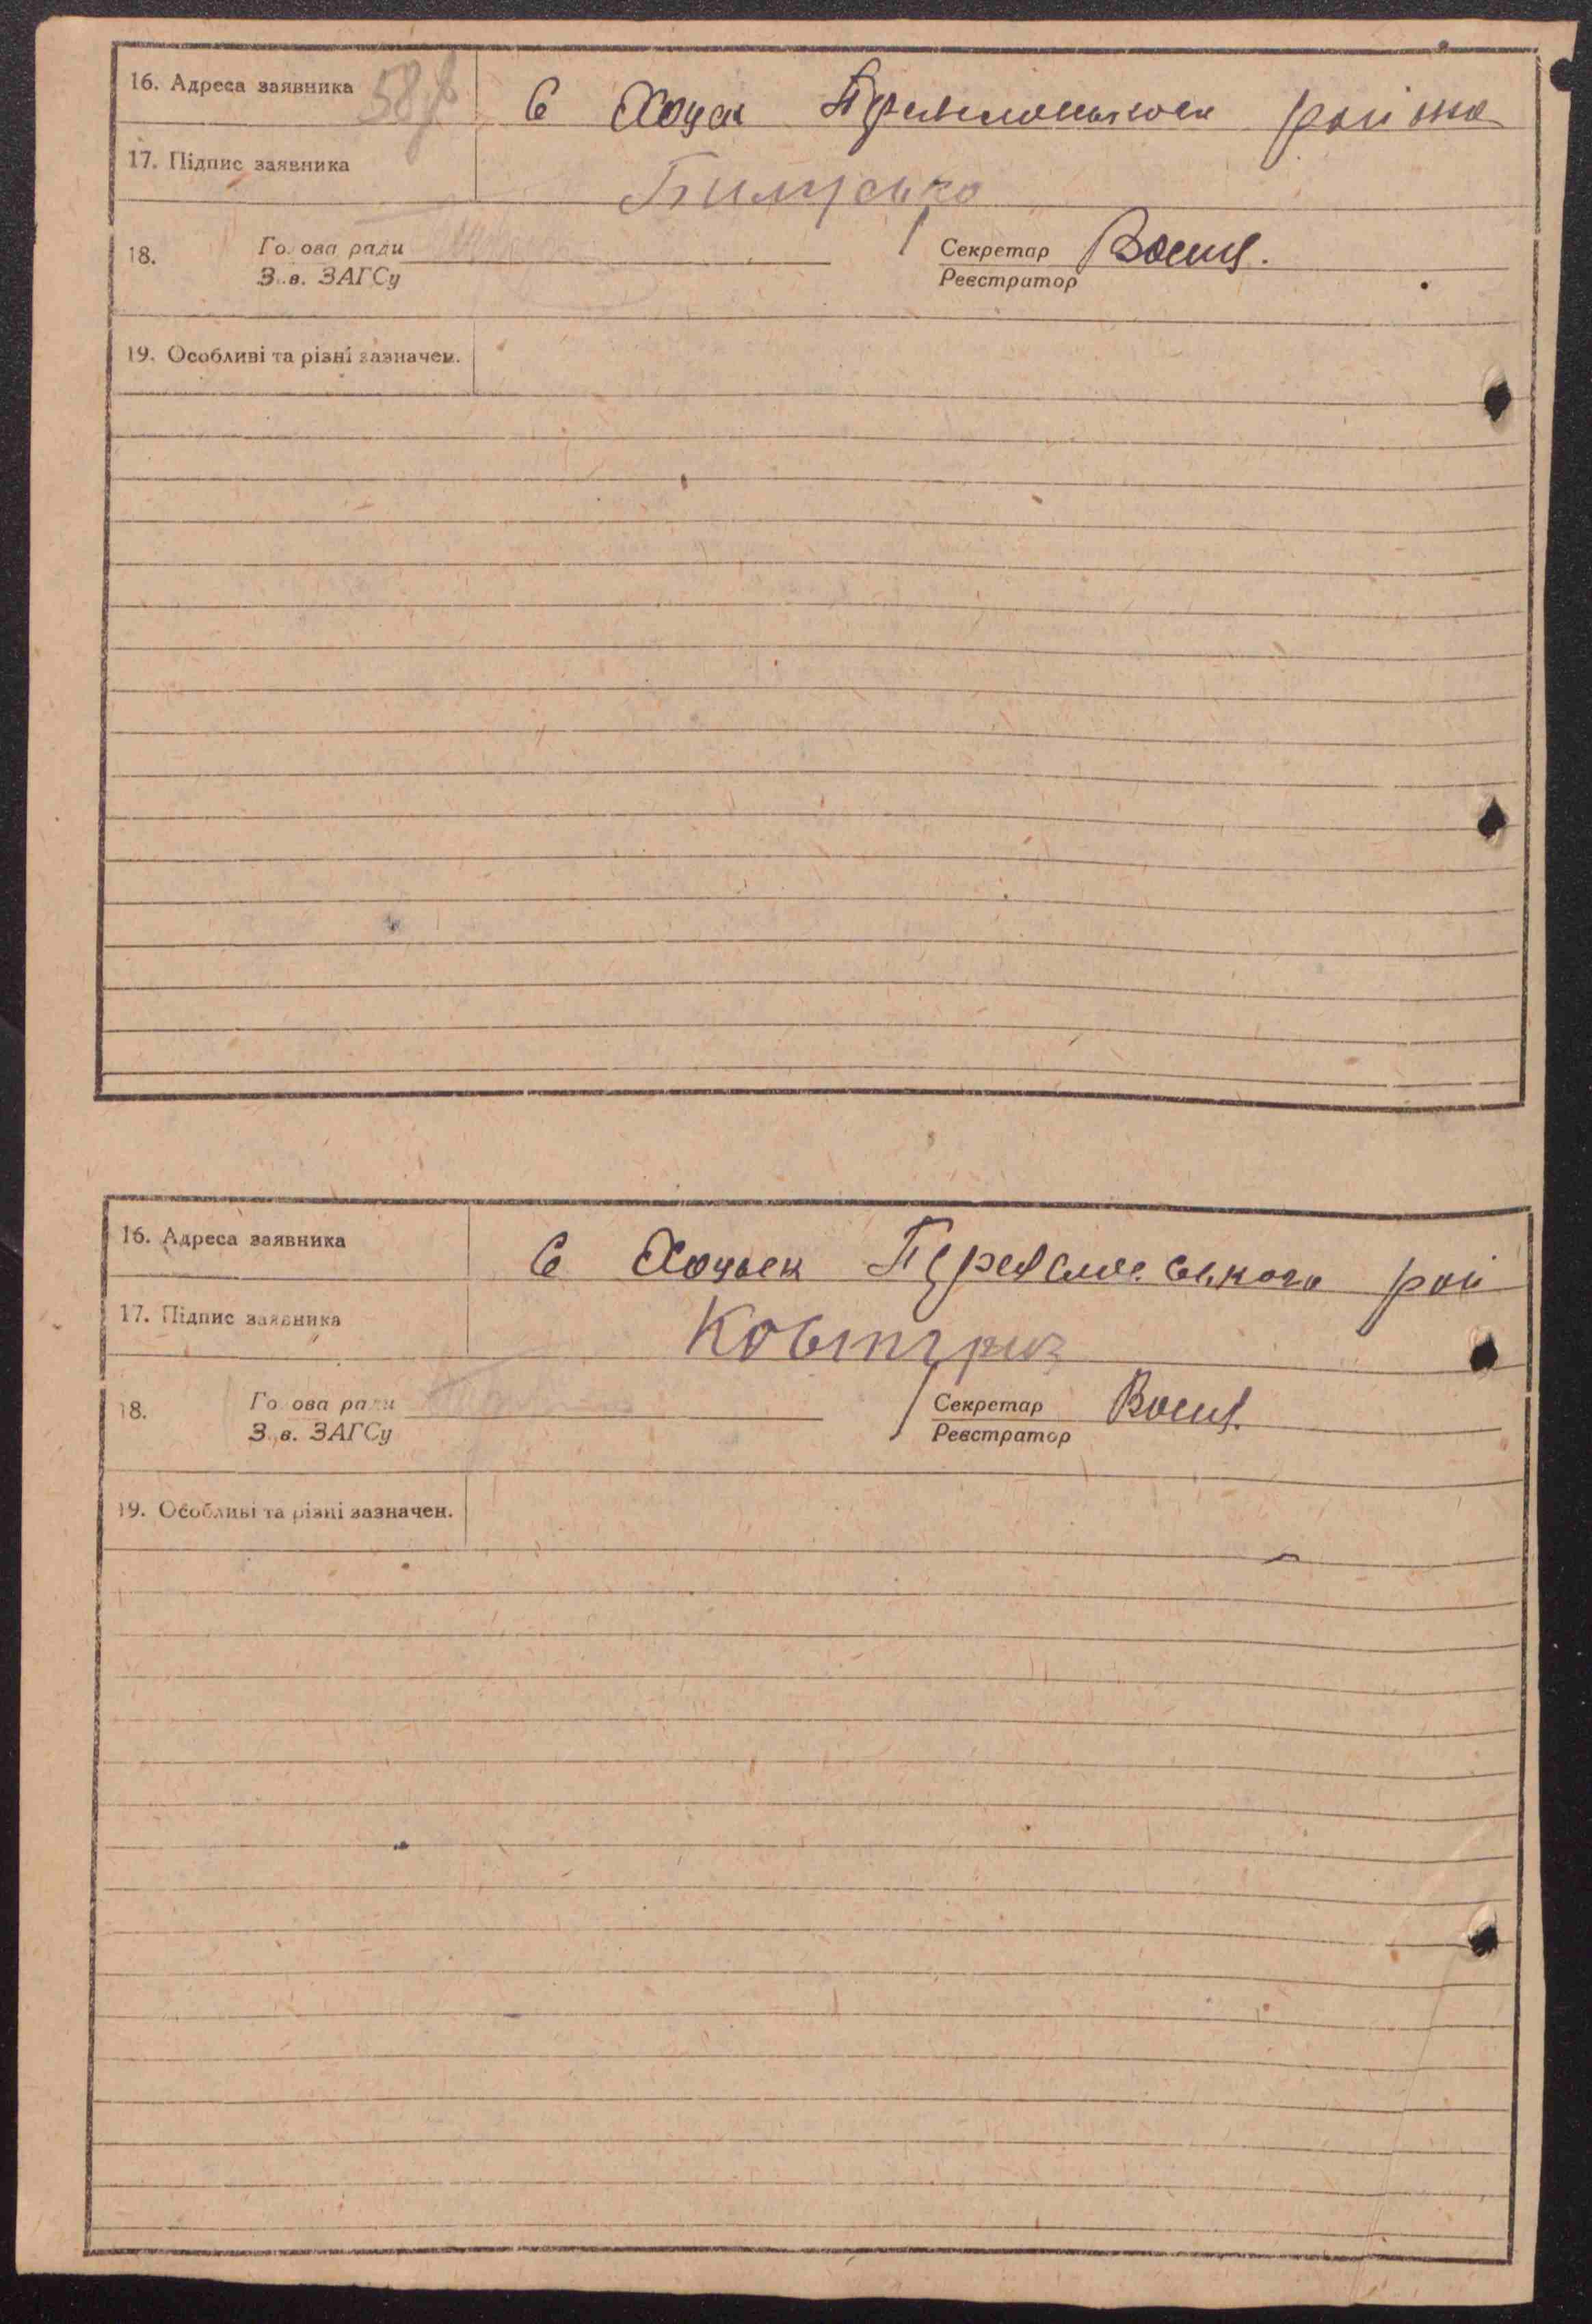 16. Адреса заявника
С Хоцьк Переяславського району
17. Підпис заявника
18. Голова ради Секретар
Зав. ЗАГСу Реєстратор
19. Особливі та різні зазначен.
16. Адреса заявника
С Хоцьек Переяславського рай
17. Підпис заявника
18. Голова ради Секретар
Зав. ЗАГСу Реєстратор
19. Особливі та різні зазначен.